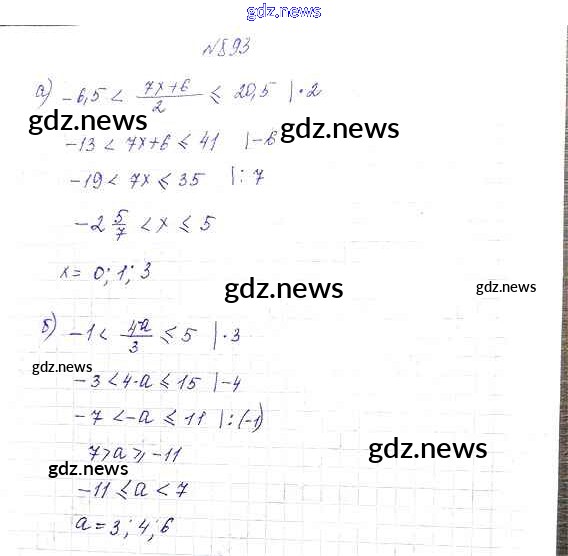 gdz.news
gdz.news
N893
а) -6,5 < (7x+6)/2 ≤ 20,5 |·2
gdz.news
gdz.news
-13 < 7x+6 ≤ 41 |-6
-19 < 7x ≤ 35 |: 7
-2 5/7 < x ≤ 5
x = 0; 1; 3
gdz.news
gdz.news
б) -1 < (4-a)/3 ≤ 5 |·3
gdz.news
-3 < 4-a ≤ 15 |-4
-7 < -a ≤ 11 |:(-1)
gdz.news
7 > a ≥ -11
gdz.news
-11 ≤ a < 7
a = 3; 4; 6